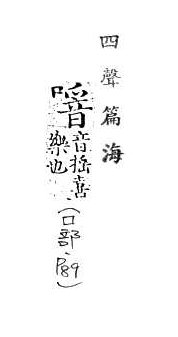 四聲篇海
音揺喜
樂也
(口部、P.89)